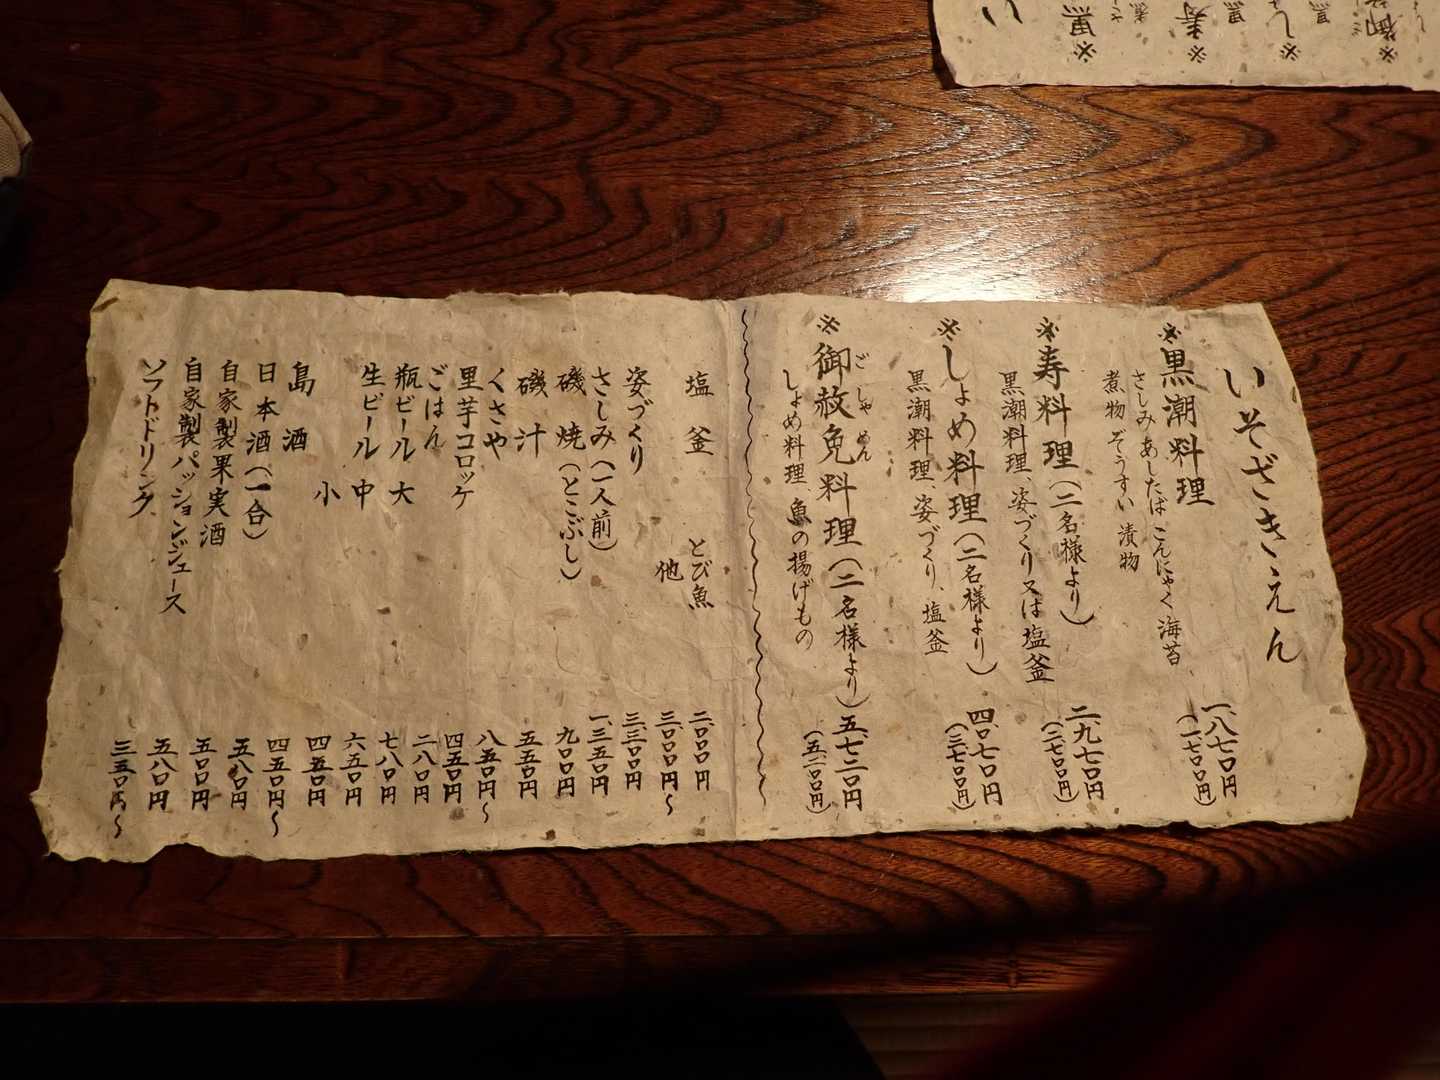 いそざきえん
※黒潮料理 一、八七〇円
さしみ あしたば こんにゃく 海苔 (一、七〇〇円)
煮物 ぞうすい 漬物
※寿料理(二名様より) 二、九七〇円
黒潮料理、姿づくり又は塩釜 (二、七〇〇円)
※しょめ料理(二名様より) 四、〇七〇円
黒潮料理、姿づくり、塩釜 (三、七〇〇円)
※御赦免料理(二名様より) 五、七二〇円
ごしゃめん
しょめ料理、魚の揚げもの (五、二〇〇円)
塩釜 とび魚 二、〇〇〇円
他 三、〇〇〇円〜
姿づくり 三、三〇〇円
さしみ(一人前) 一、三五〇円
磯焼(とこぶし) 九〇〇円
磯汁 五五〇円
くさや 八五〇円〜
里芋コロッケ 四五〇円
ごはん 二八〇円
瓶ビール 大 七八〇円
生ビール 中 六五〇円
小 四五〇円
島酒 四五〇円〜
日本酒(一合) 五八〇円
自家製果実酒 五〇〇円
自家製パッションジュース 五八〇円
ソフトドリンク 三五〇円〜